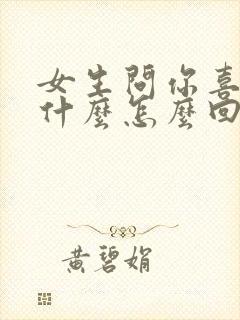 女生問你喜
什麼怎麼回
黃碧娟